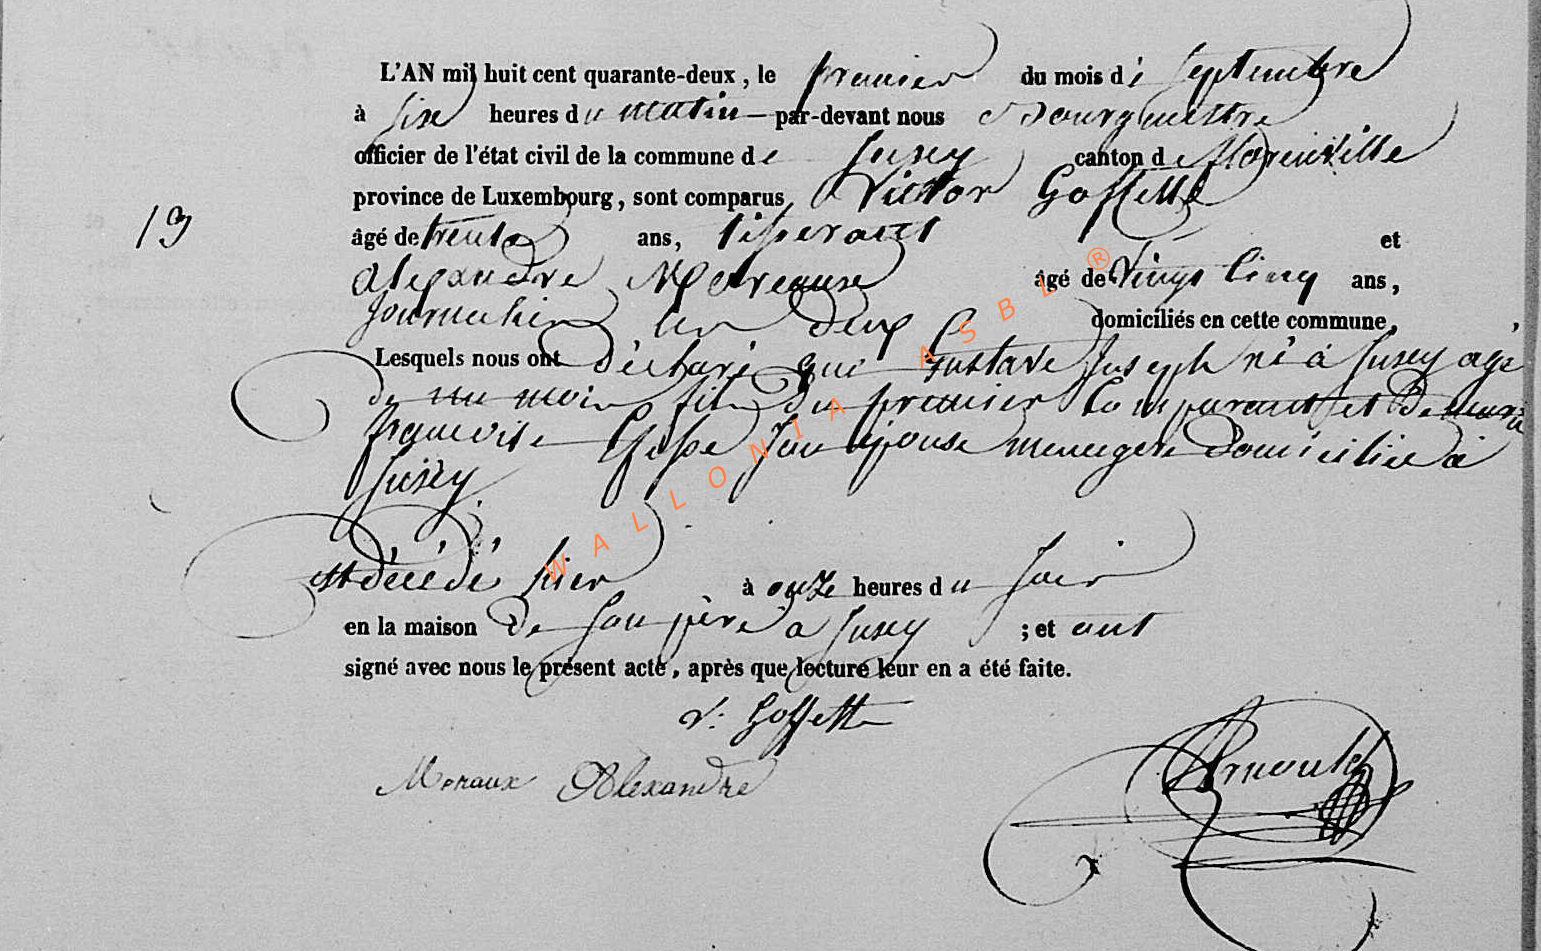 L'AN mil huit cent quarante-deux, le premier du mois de Septembre
à six heures du matin — par-devant nous Bourgmestre
officier de l'état civil de la commune de Jusey canton de florenville
province de Luxembourg, sont comparus Victor Goffette
13
âgé de trente ans, tisserant et
alexandre Moreaux âgé de vingt cinq ans,
Journalier les deux domiciliés en cette commune,
Lesquels nous ont déclaré que gustave Joseph né à Jusey agé
de un mois fils du premier Comparant et de marie
françoise son épouse menagere domiciliée à
Jusey
est décédé hier à onze heures du soir
en la maison de son père à Jusey ; et ont
signé avec nous le présent acte, après que lecture leur en a été faite.
V. Goffette
Moraux Alexandre
Arnould
WALLONIA ASBL ®